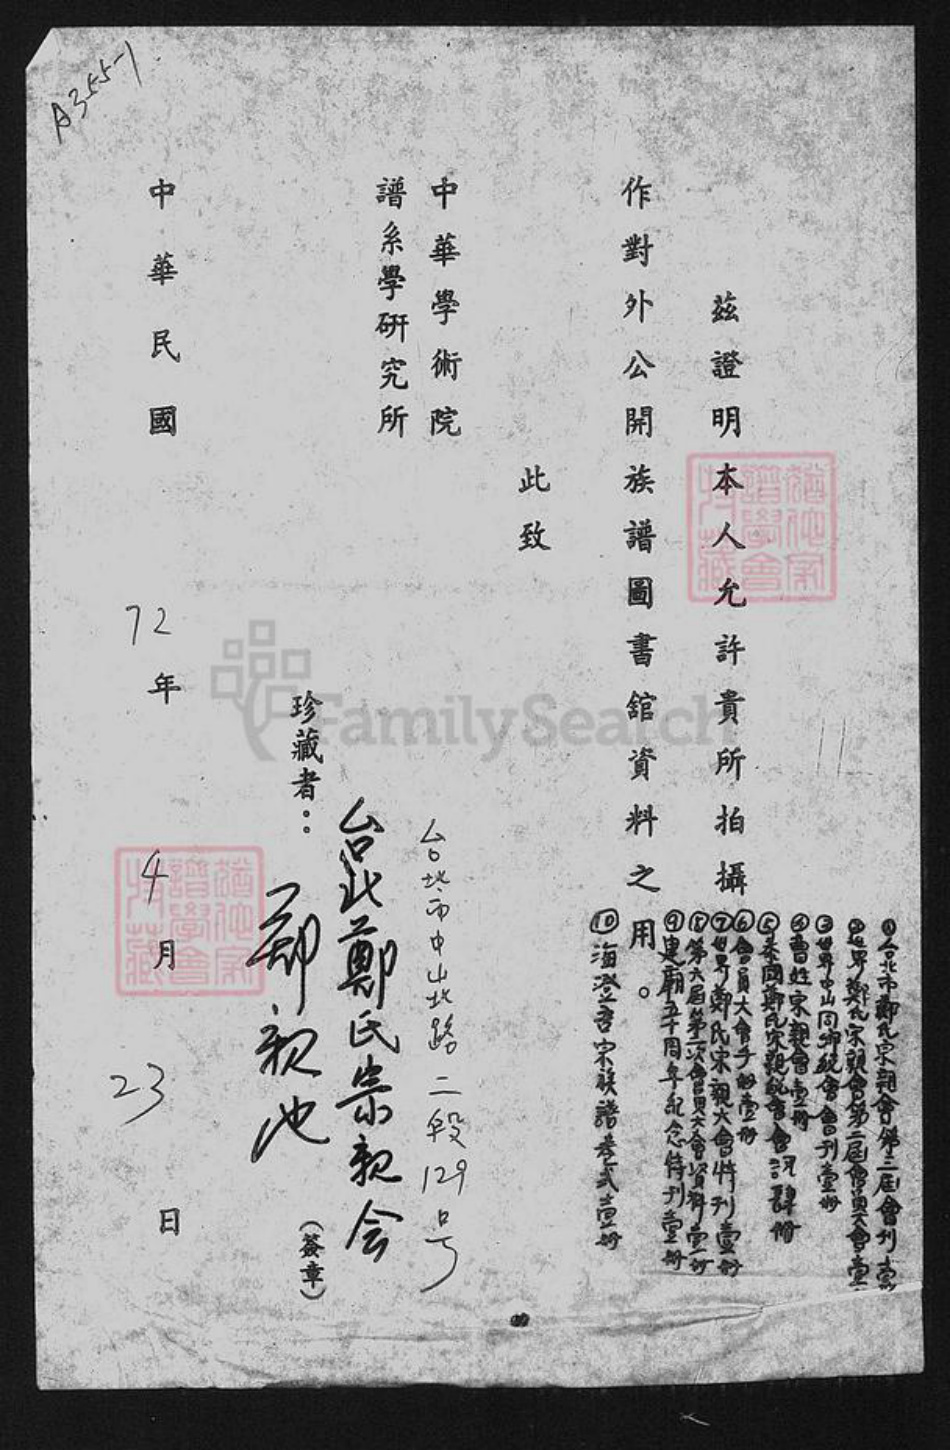 A355-1
茲證明本人允許貴所拍攝
①台北市鄭氏宗親會第三屆會刊壹
②世界鄭氏宗親會第二屆會員大會壹
③世界中山同鄉總會會刊壹册
④曹姓宗親會壹册
⑤泰國鄭氏宗親總會會訊肆册
⑥會員大會手册壹册
⑦世界鄭氏宗親大會特刊壹册
⑧第六屆第一次會員大會資料壹册
⑨建廟五十周年紀念特刊壹册
⑩海澄 宗族譜 壹册
作對外公開族譜圖書館資料之用。
此致
中華學術院
譜系學研究所
台北市中山北路二段129号
台北鄭氏宗親会
珍藏者：鄭親池(簽章)
中華民國72年4月23日
譜學會
譜學會
FamilySearch